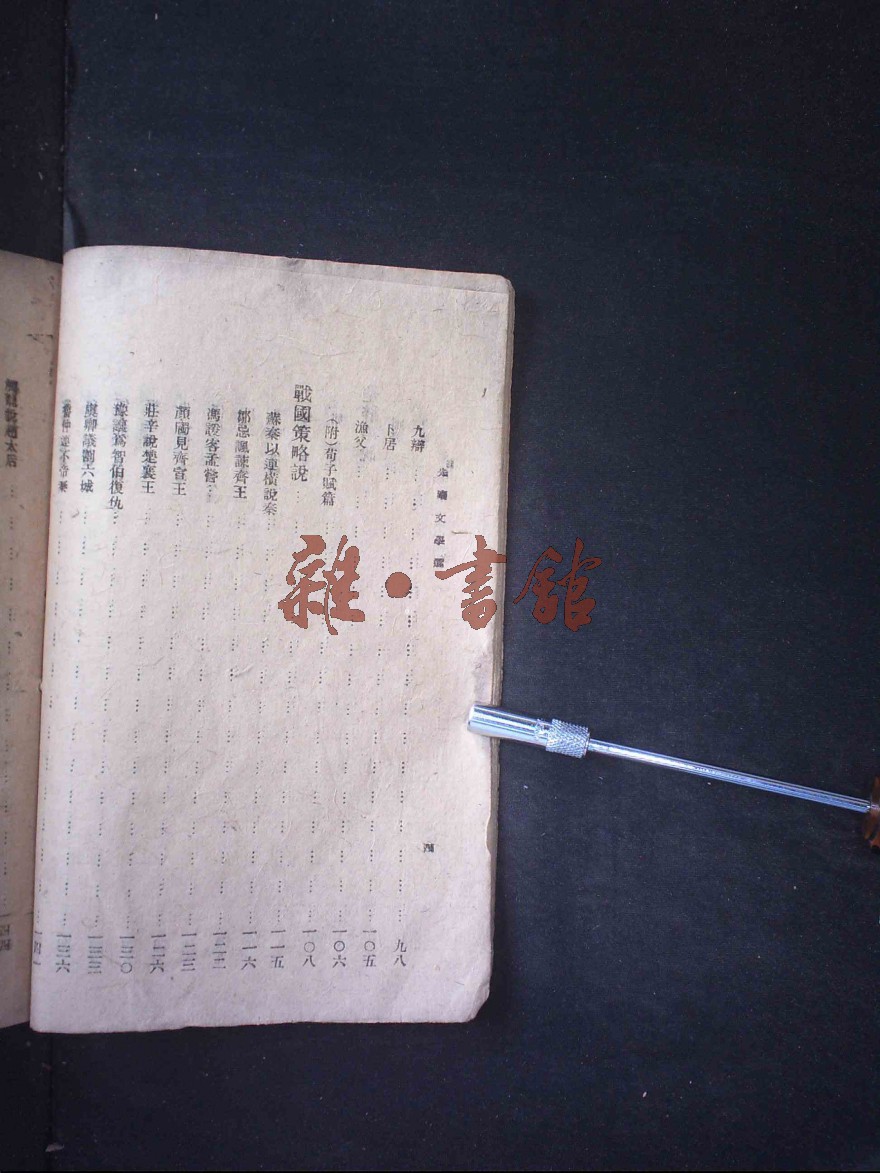 文學
四
九辯………九八
卜居………一〇五
漁父………一〇六
(附)荀子賦篇………一〇八
戰國策略說………一一五
蘇秦以連橫說秦………一一六
鄒忌諷諫齊王………一二二
馮諼客孟嘗………一二三
顏斶見齊宣王………一二六
莊辛說楚襄王………一三〇
豫讓爲智伯復仇………一三三
虞卿議割六城………一三六
魯仲連不帝秦
趙太后
雜·書館